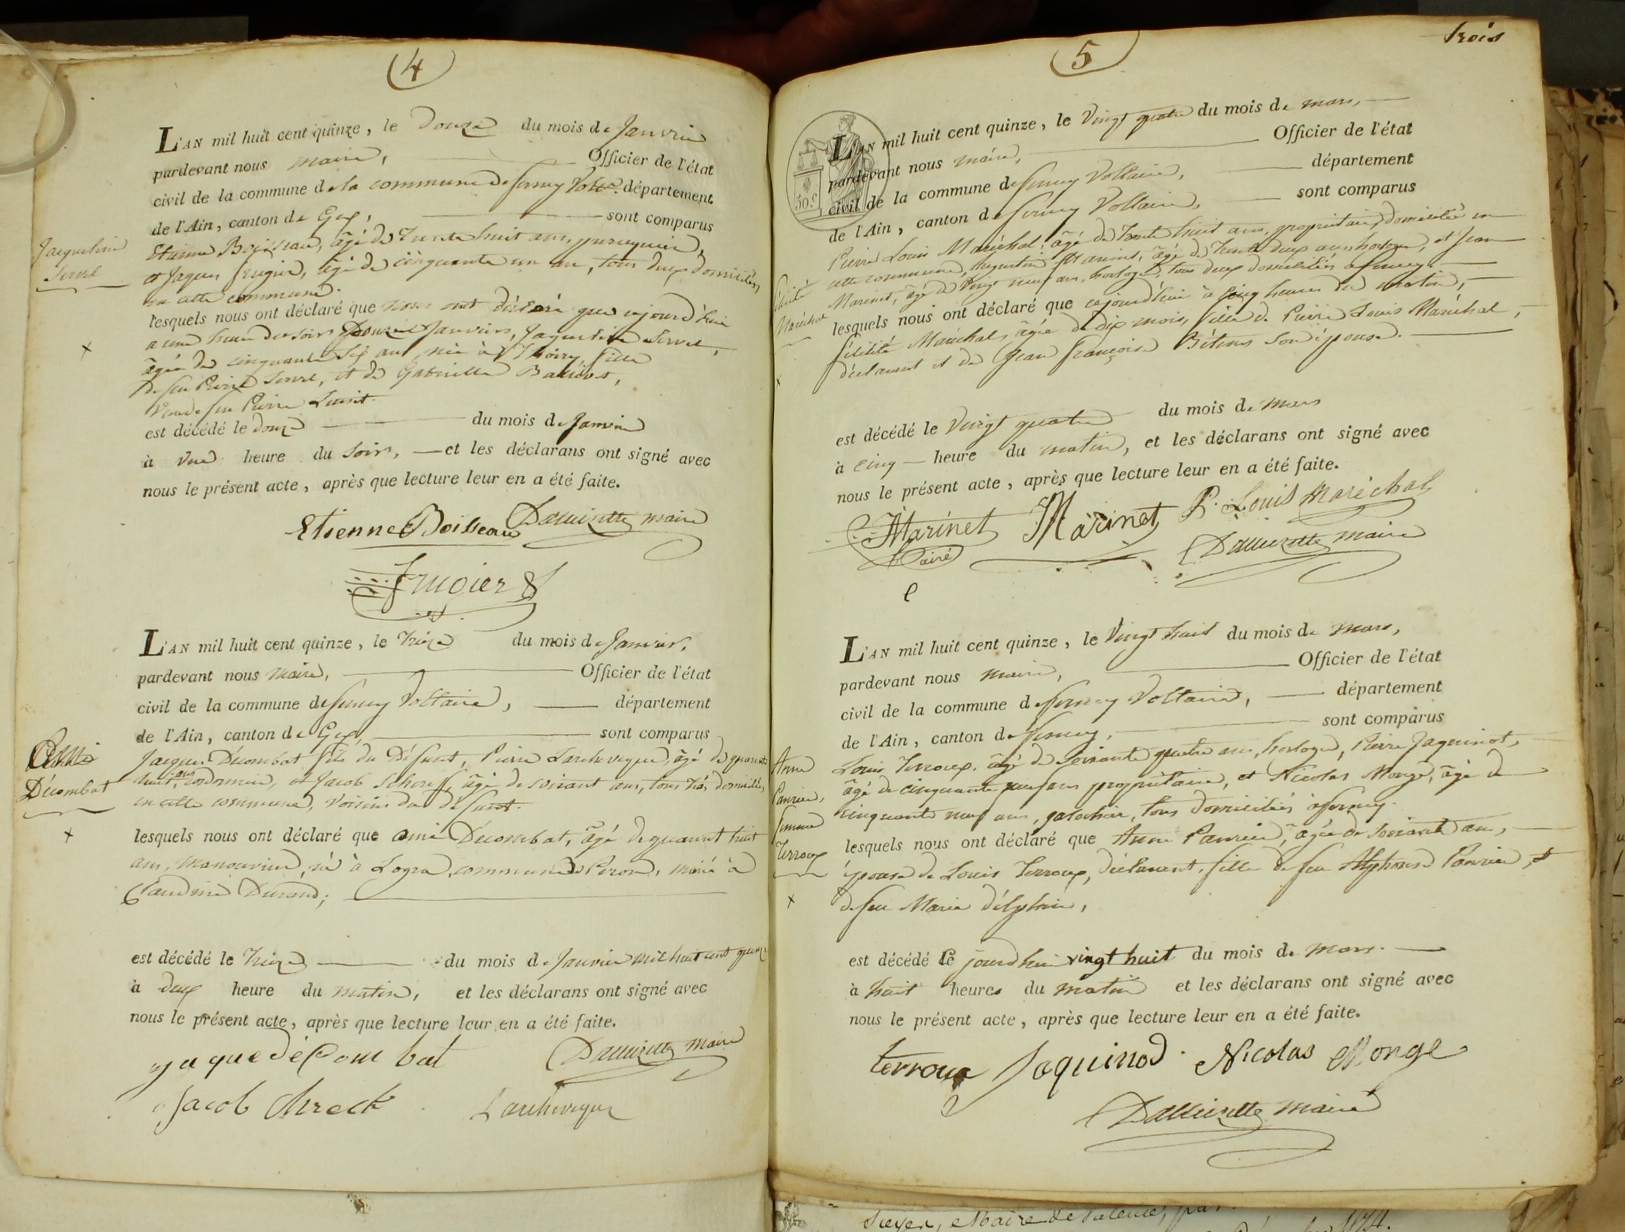 4
L'AN mil huit cent quinze, le Douze du mois de Janvier
pardevant nous maire, Officier de l'état
civil de la commune de la commune de ferney Volt.re département
de l'Ain, canton de Gex, sont comparus
Etienne Boisseau, âgé de trente huit ans, perruquier,
et Jaques frugier, âgé de cinquante un an, tous deux domiciliés
en cette commune.
Jaqueline
Servet
lesquels nous ont déclaré que nous ont déclaré que cejourd'hui
a une heure du soir Douze Janvier, Jaqueline Servet,
âgée de cinquante six ans, née à Thoiry, fille
de feu Pierre Servet, et de Gabrielle
Veuve de feu Pierre
est décédé le douze du mois de Janvier
à une heure du soir, et les déclarans ont signé avec
nous le présent acte, après que lecture leur en a été faite.
Etienne Boisseau maire
frugier
L'AN mil huit cent quinze, le treize du mois de Janvier,
pardevant nous maire, Officier de l'état
civil de la commune de ferney Voltaire, département
de l'Ain, canton de Gex, sont comparus
Jaque Décombat fils du Défunt, Pierre Larchevêque, âgé de quarante
huit ans, cordonnier, et Jacob Schreck, âgé de soixant ans, tous trois domiciliés
en cette commune, voisins du défunt.
Amé
Décombat
lesquels nous ont déclaré que amé Décombat, âgé de quarant huit
ans, manouvrier, né à Logra, commune de Péron, marié à
Claudine Durand;
est décédé le treize du mois de Janvier mil huit cent quinze
à deux heure du matin, et les déclarans ont signé avec
nous le présent acte, après que lecture leur en a été faite.
jaque déCombat maire
Jacob chreck Larcheveque
5
trois
30.c
L'AN mil huit cent quinze, le Vingt quatre du mois de mars,
pardevant nous maire, Officier de l'état
civil de la commune de ferney Voltaire, département
de l'Ain, canton de ferney Voltaire, sont comparus
Pierre Louis Maréchal, âgé de trente huit ans, propriétaire, domicilié en
cette commune, Augustin Marinet, âgé de trente deux ans, horloger, et Jean
Marinet, âgé de Vingt neuf ans, horloger, tous deux domiciliés à ferney.
félicité
Maréchal
lesquels nous ont déclaré que cejourd'hui à cinq heures du matin,
félicité Maréchal, âgée de dix mois, fille de Pierre Louis Maréchal,
déclarant et de Jean françoise son épouse.
est décédé le Vingt quatre du mois de mars
à cinq heure du matin, et les déclarans ont signé avec
nous le présent acte, après que lecture leur en a été faite.
Marinet Marinet P. Louis Maréchal
maire
L'AN mil huit cent quinze, le Vingt huit du mois de mars,
pardevant nous maire, Officier de l'état
civil de la commune de ferney Voltaire, département
de l'Ain, canton de ferney, sont comparus
Louis Terroux, âgé de soixante quatre ans, horloger, Pierre Jaquinot,
âgé de cinquante ans propriétaire, et Nicolas Monge, âgé de
cinquante neuf ans, tous domiciliés à ferney.
Anne
Panrier,
femme
Terroux
lesquels nous ont déclaré que Anne Panrier, âgée de soixante ans,
épouse de Louis Terroux, déclarant, fille de feu Alphonse Panrier, et
de feu Marie délphine,
est décédé le jourdhui vingt huit du mois de mars.
à huit heures du matin et les déclarans ont signé avec
nous le présent acte, après que lecture leur en a été faite.
terroux Jaquinod. Nicolas Monge
maire